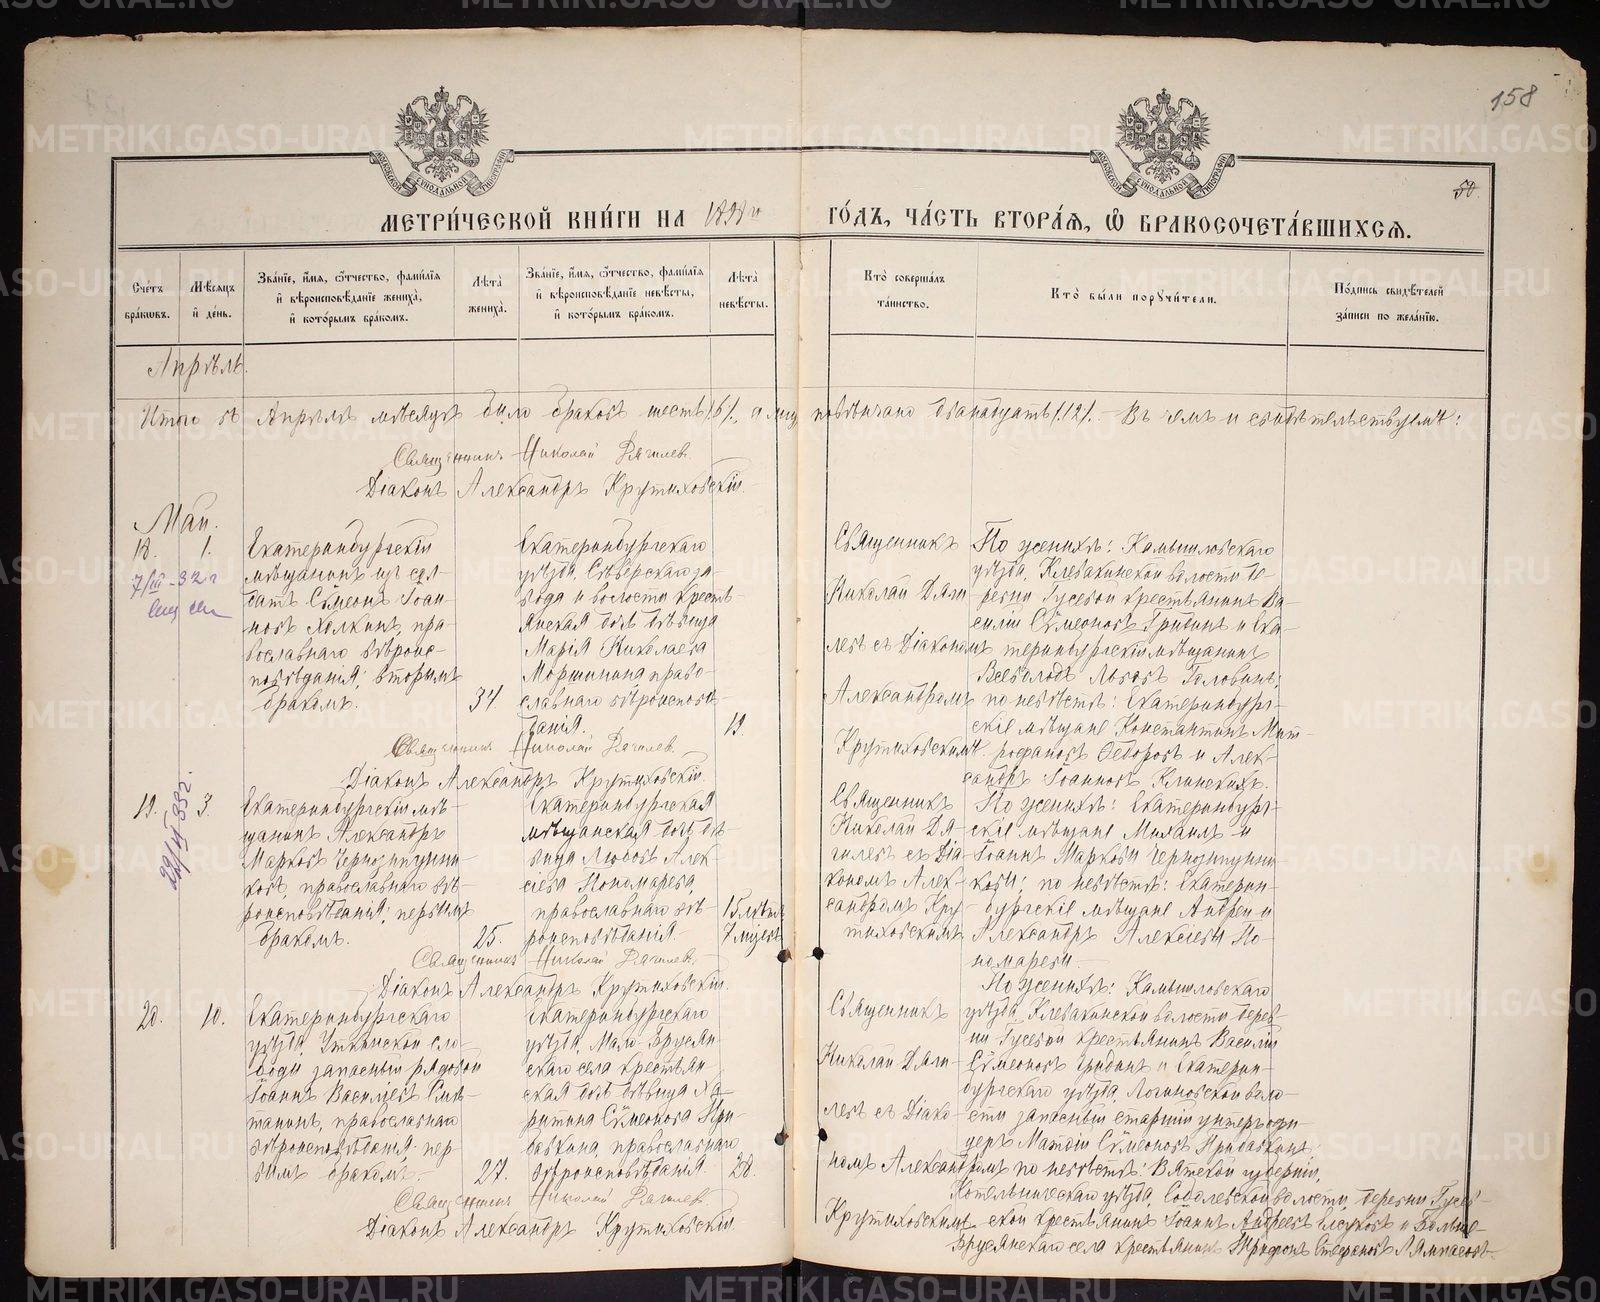 158
50
МЕТРИ́ЧЕСКОЙ КНИ́ГИ НА 1898й ГО́ДЪ, ЧА́СТЬ ВТОРА́Я, Ѿ БРАКОСОЧЕТА́ВШИХСЯ.
Сче́тъ бра́кωвъ.
Мѣ́сяцъ и҆ де́нь.
Зва́нїе, и҆́мя, ѻ҆́тчество, фами́лїя и҆ вѣроисповѣ́данїе жениха̀, и҆ кото́рымъ бра́комъ.
Лѣ́та жениха̀.
Зва́нїе, и҆́мя, ѻ҆́тчество, фами́лїя и҆ вѣроисповѣ́данїе невѣ́сты, и҆ кото́рымъ бра́комъ.
Лѣ́та невѣ́сты.
Кто̀ соверша́лъ та́инство.
Кто̀ бы́ли порꙋчи́тели.
По́дпись свидѣ́телей за́писи по жела́нїю.
Апрѣль.
Итого въ Апрѣлѣ мѣсяцѣ было браковъ шесть /6/, а лицъ повѣнчано двѣнадцать /12/. Въ чемъ и свидѣтельствуемъ:
Священникъ Николай Дягилев
Діаконъ Александръ Крутиховскій
Май.
18.
1.
7/III-32 г
Екатеринбургскій
мѣщанинъ из сол-
датъ Сѵмеонъ Іоан-
новъ Холкинъ, пра-
вославнаго вѣроис-
повѣданія; вторымъ
бракомъ.
34.
Екатеринбургскаго
уѣзда, Сѣверскаго за-
вода и волости кресть-
янская дочь дѣвица
Марія Николаева
Моршинина право-
славнаго вѣроисповѣ-
данія.
19.
Священникъ
Николай Дяги-
левъ съ Діакономъ
Александромъ
Крутиховскимъ.
По женихѣ: Камышловскаго
уѣзда, Клевакинской волости де-
ревни Гусевой крестьянинъ Ва-
силій Сѵмеоновъ Гридинъ и Ека-
теринбургскій мѣщанинъ
Всеволодъ Львовъ Головинъ;
по невѣстѣ: Екатеринбург-
скіе мѣщане Константинъ Мит-
рофановъ Ѳедоровъ и Алек-
сандръ Іоанновъ Клинскихъ.
Священникъ Николай Дягилев.
Діаконъ Александръ Крутиховскій
19.
3.
Екатеринбургскій мѣ-
щанинъ Александръ
Марковъ Чернозипунни-
ковъ, православнаго вѣ-
роисповѣданія; первымъ
бракомъ.
25.
Екатеринбургская
мѣщанская дочь дѣ-
вица Любовь Алек-
сіева Пономарева,
православнаго вѣ-
роисповѣданія.
15 лѣтъ
7 мѣсяц.
Священникъ
Николай Дя-
гилевъ съ Діа-
кономъ Алек-
сандромъ Кру-
тиховскимъ
По женихѣ: Екатеринбург-
скіе мѣщане Михаилъ и
Іоаннъ Марковы Чернозипунни-
ковы; по невѣстѣ: Екатерин-
бургскіе мѣщане Андрей и
Александръ Алексіевы По-
номаревы.
Священникъ Николай Дягилев.
Діаконъ Александръ Крутиховскій.
20.
10.
Екатеринбургскаго
уѣзда, Уткинской сло-
боды запасный рядовой
Іоаннъ Василіевъ Сме-
танинъ, православнаго
вѣроисповѣданія; пер-
вымъ бракомъ.
27.
Екатеринбургскаго
уѣзда, Мало-Брусян-
скаго села крестьян-
ская дочь дѣвица Ха-
ритина Сѵмеонова При-
бавкина, православнаго
вѣроисповѣданія
20.
Священникъ
Николай Дяги-
левъ съ Діако-
номъ Александромъ
Крутиховскимъ
По женихѣ: Камышловскаго
уѣзда, Клевакинской волости дерев-
ни Гусевой крестьянинъ Василій
Сѵмеоновъ Гридинъ и Екатерин-
бургскаго уѣзда, Логиновской воло-
сти запасный старшій унтеръ-офи-
церъ Матѳій Сѵмеоновъ Прибавкинъ;
по невѣстѣ: Вятской губерніи,
Котельническаго уѣзда, волости, деревни
крестьянинъ Іоаннъ Андреевъ и Больше-
Брусянскаго села крестьянинъ Трифонъ Стефановъ
Священникъ Николай Дягилев
Діаконъ Александръ Крутиховскій
METRIKI.GASO-URAL.RU